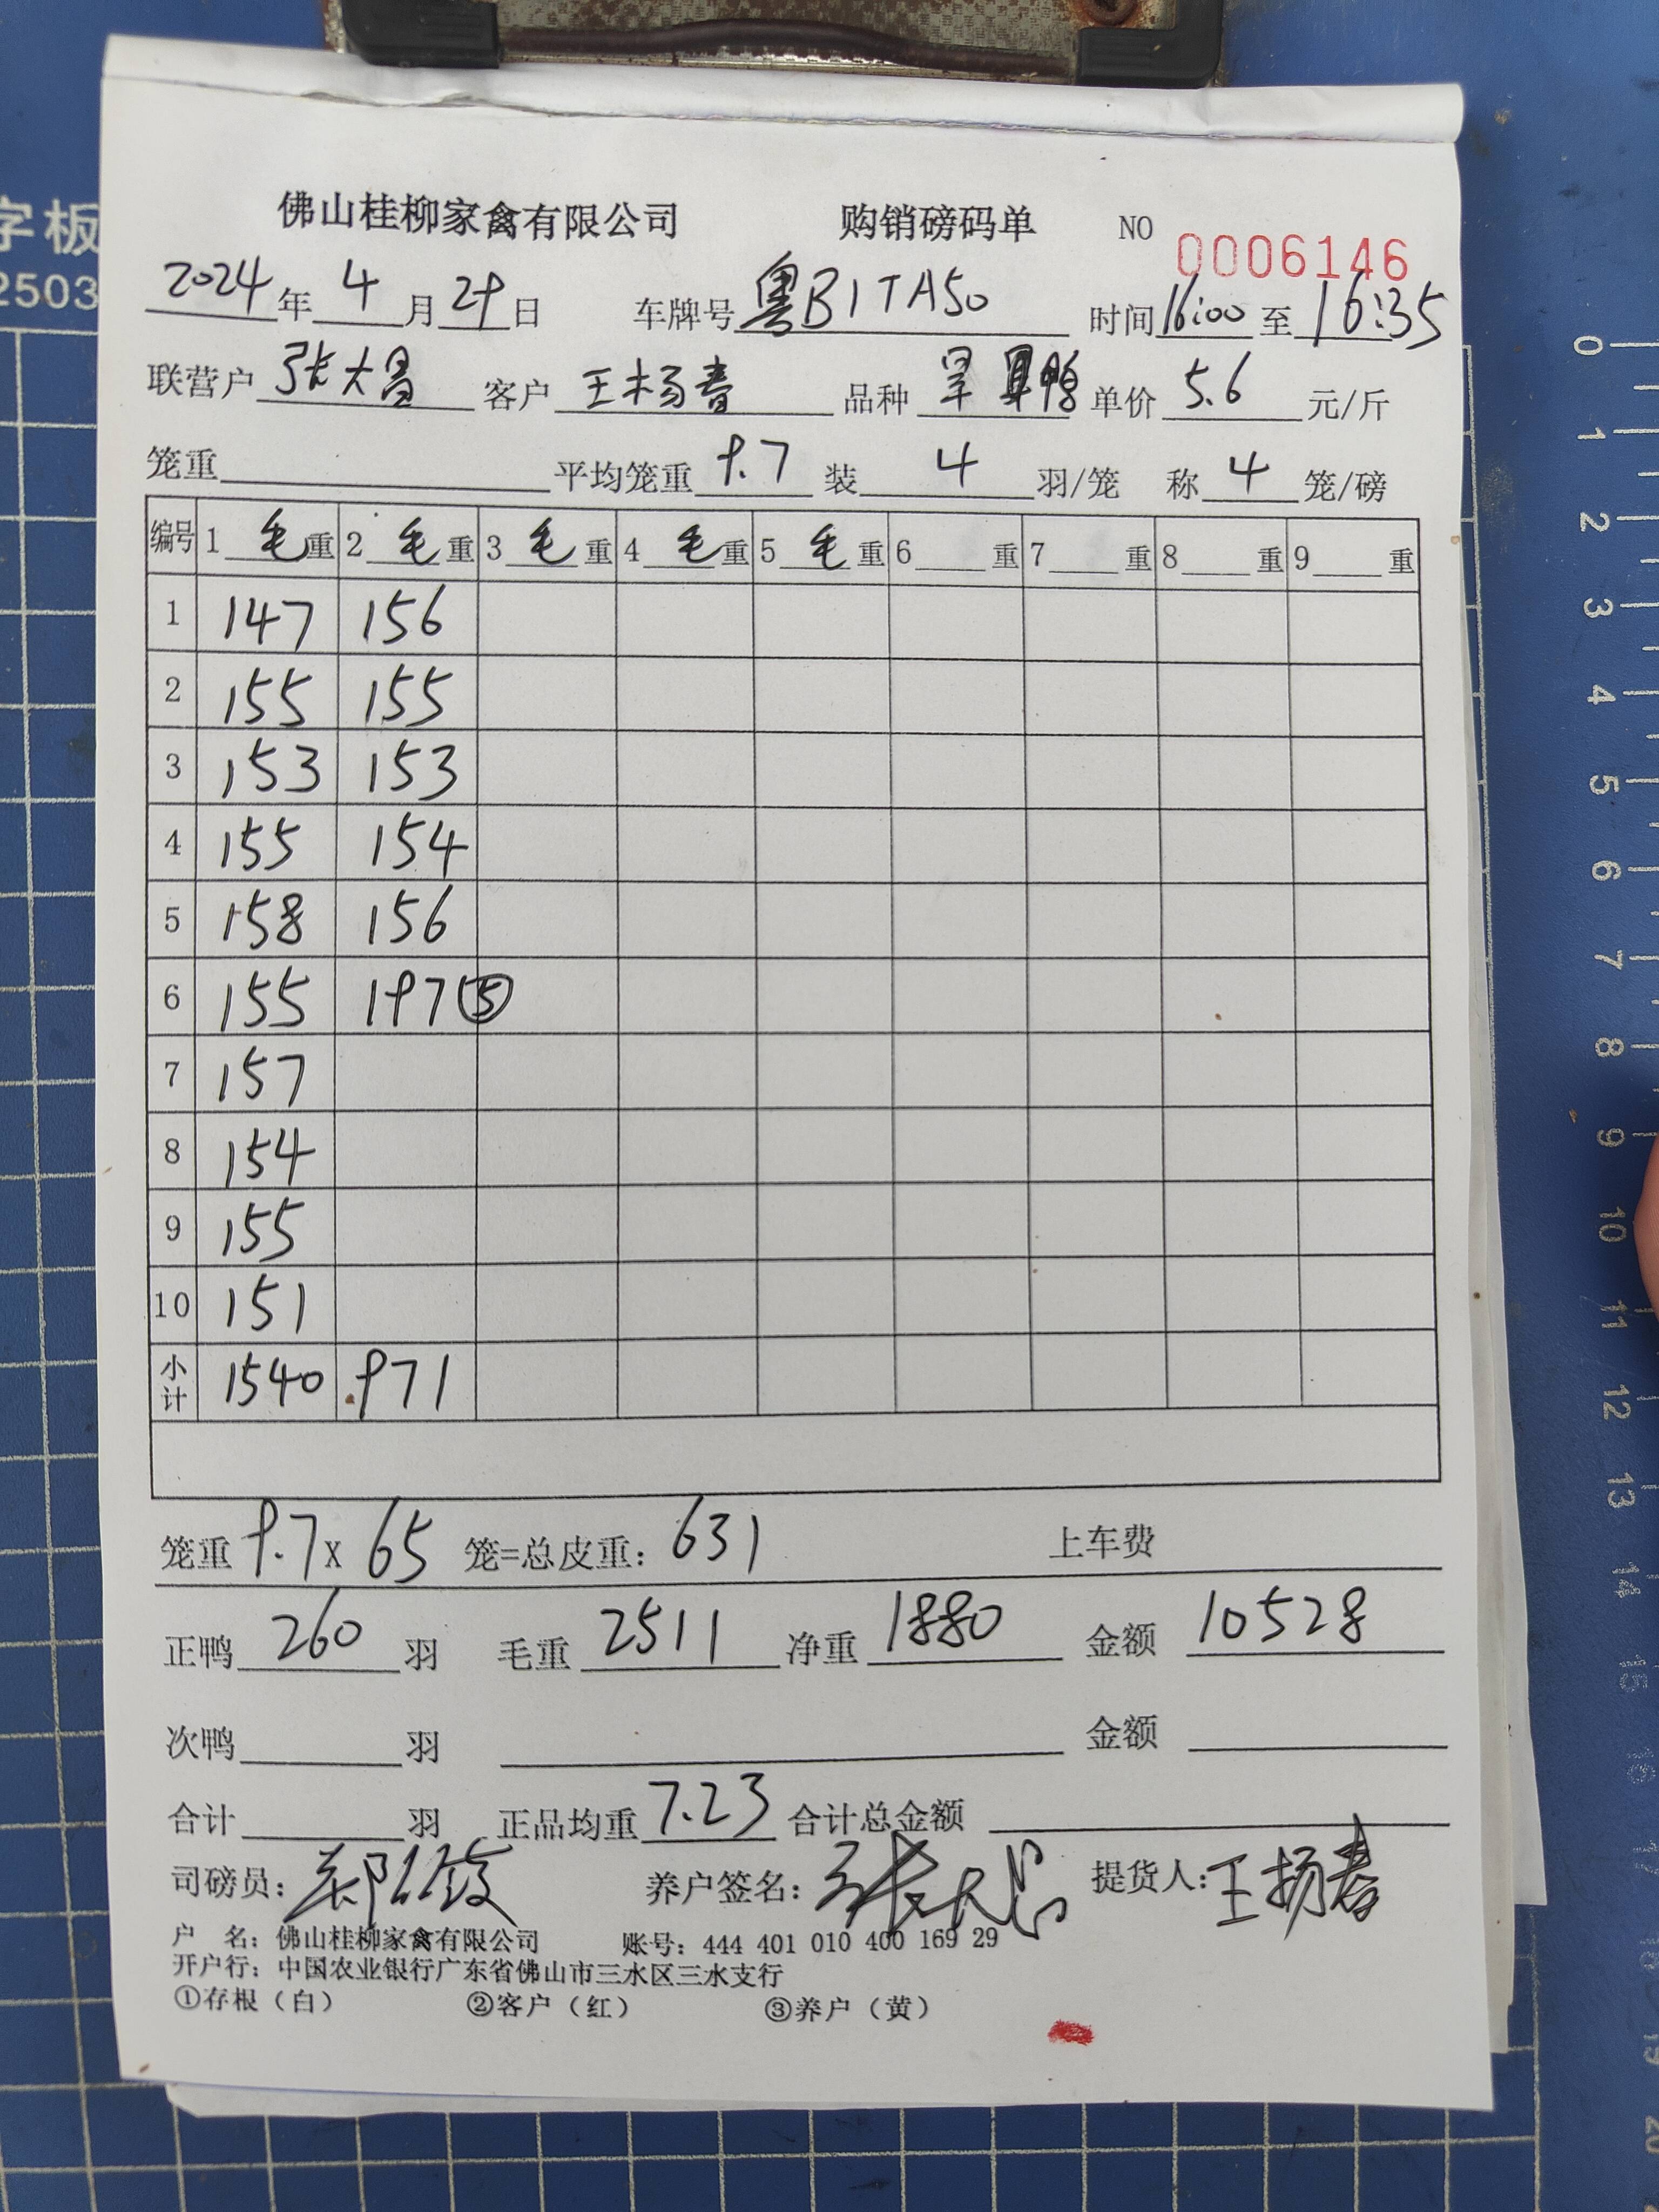 字板
2503
佛山桂柳家禽有限公司 购销磅码单 NO 0006146
2024年4月29日 车牌号粤B1TA50 时间16:00至16:35
联营户 张大昌 客户 王杨春 品种 鸭 单价5.6元/斤
笼重 平均笼重9.7 装4羽/笼 称4笼/磅
编号 1毛重 2毛重 3毛重 4毛重 5毛重 6重 7重 8重 9重
1 147 156
2 155 155
3 153 153
4 155 154
5 158 156
6 155 197⑤
7 157
8 154
9 155
10 151
小计 1540 971
笼重9.7x65笼=总皮重:631 上车费
正鸭260羽 毛重2511 净重1880 金额10528
次鸭 羽 金额
合计 羽 正品均重7.23 合计总金额
司磅员: 养户签名: 张大昌 提货人:王扬春
户 名: 佛山桂柳家禽有限公司 账号: 444 401 010 400 169 29
开户行: 中国农业银行广东省佛山市三水区三水支行
①存根(白) ②客户(红) ③养户(黄)
0
1
2
3
4
5
6
7
8
9
10
11
12
13
14
15
16
17
19
20